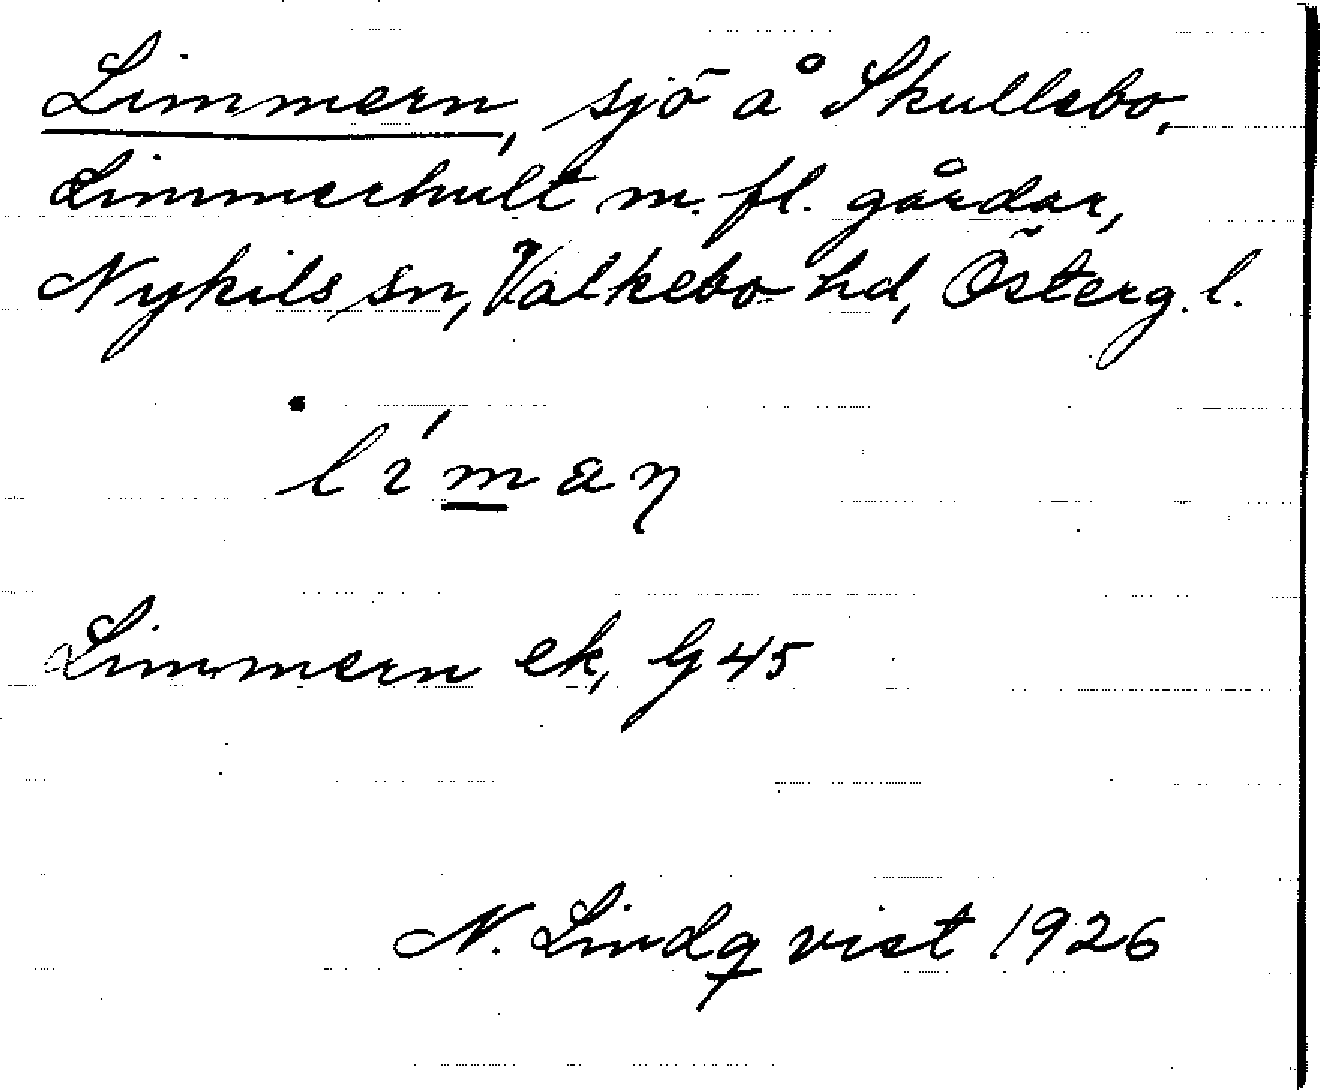 Limmern, sjö å Skullebo,
Limmerhult m. fl. gårdar,
Nykils sn, Valkebo hd, Österg. l.
Limmern ek, G 45
N. Lindqvist 1926